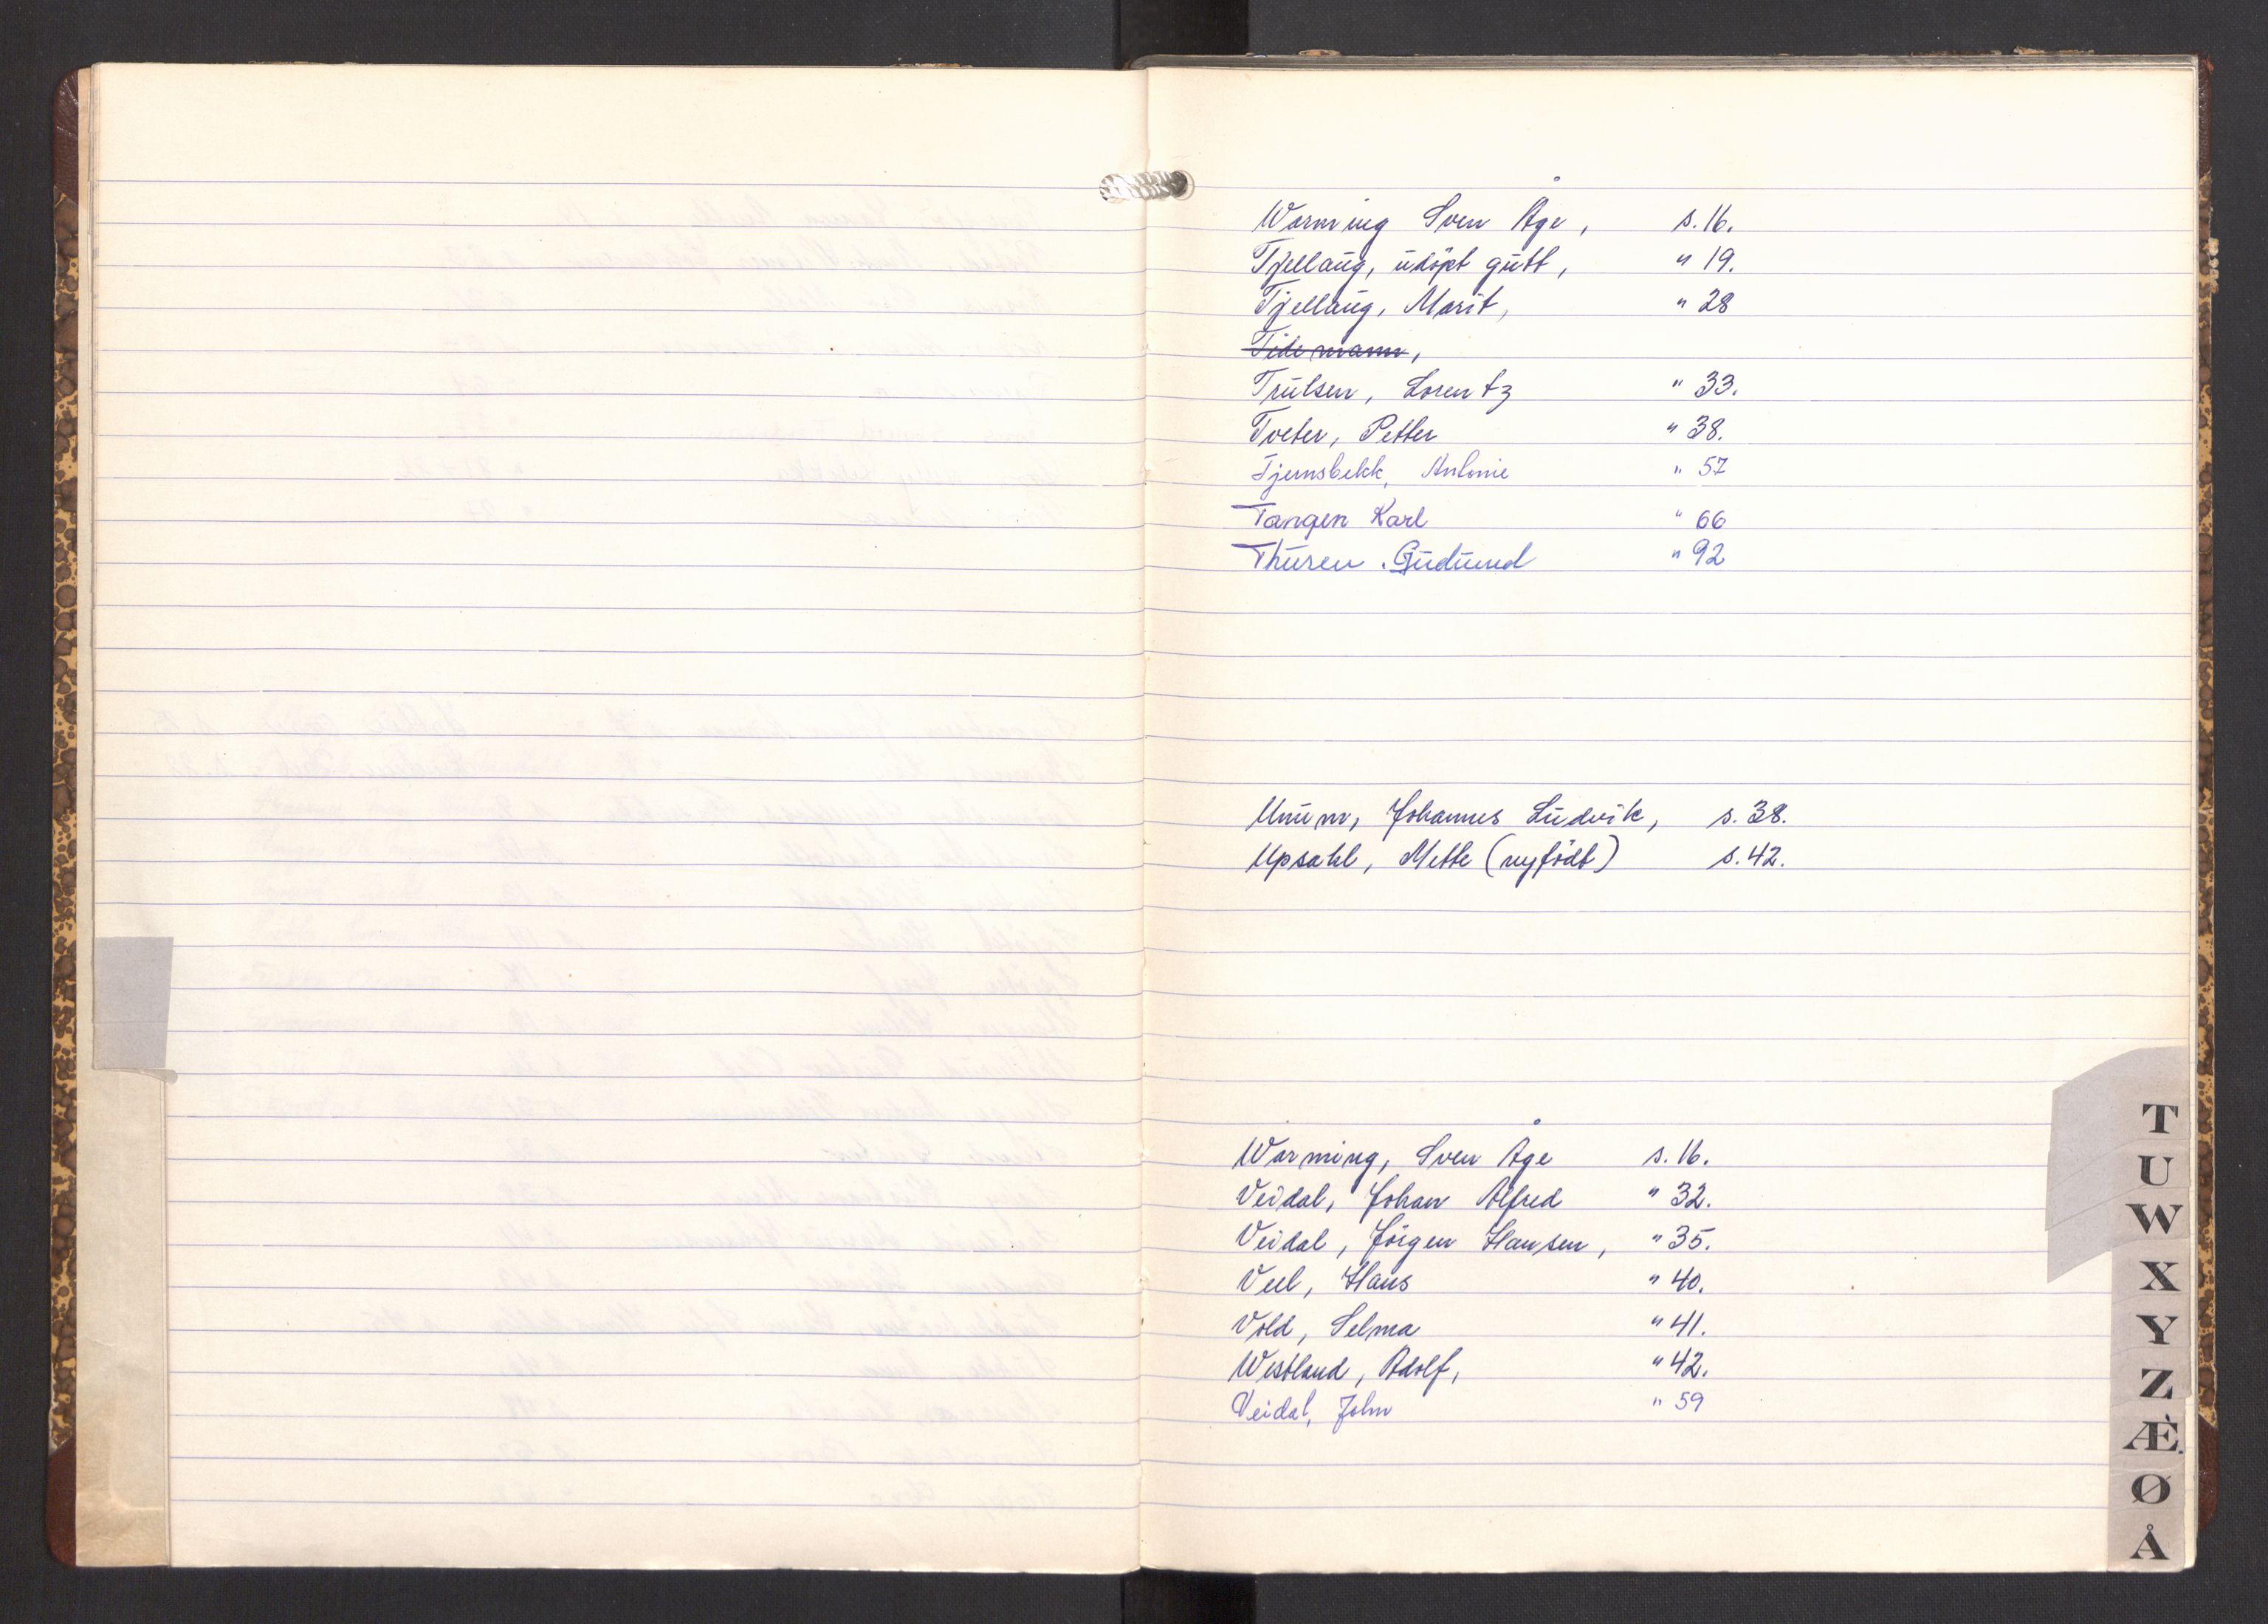 Warming Sven Åge, s. 16.
Tjellaug, udöpt gutt, " 19.
Tjellaug, Marit, " 28
Tidemann,
Trulsen, Lorentz " 33.
Tveter, Petter " 38.
Tjernsbekk, Antonie " 57
Tangen Karl " 66
Thuren . Gudund " 92
Unum, Johannes Ludvik, s. 38.
Upsahl, Mette (nyfödt) s. 42.
Warming, Sven Åge s. 16.
Veidal, Johan Alfred " 32.
Veidal, Jörgen Hansen, " 35.
Veel, Hans " 40.
Vold, Selma " 41.
Westland, Adolf, " 42.
Veidal, John " 59
T
U
W
X
Y
Z
Æ.
Ø
Å